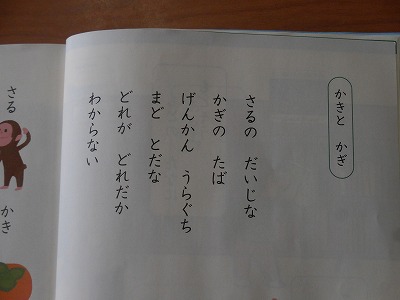 かきと　かぎ
さるの　だいじな
かぎの　たば
げんかん　うらぐち
まど　とだな
どれが　どれだか
わからない
さる
かき